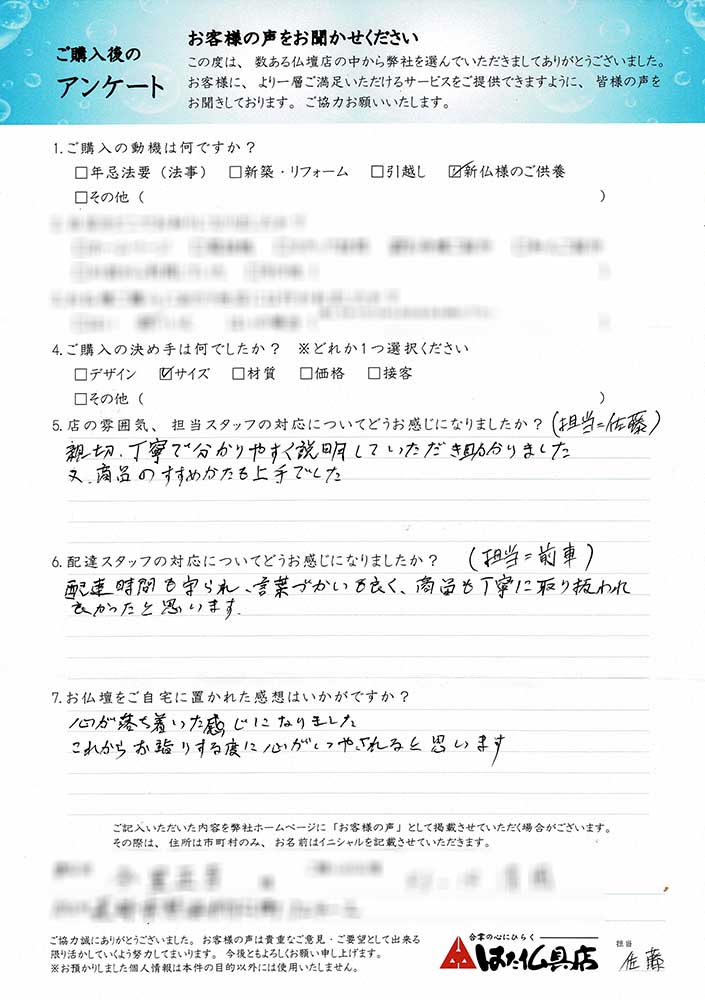 ご購入後の
アンケート
お客様の声をお聞かせください
この度は、数ある仏壇店の中から弊社を選んでいただきましてありがとうございました。
お客様に、より一層ご満足いただけるサービスをご提供できますように、皆様の声を
お聞きしております。ご協力お願いいたします。
1.ご購入の動機は何ですか？
□年忌法要（法事） □新築・リフォーム □引越し ☑新仏様のご供養
□その他（ ）
4.ご購入の決め手は何でしたか？ ※どれか1つ選択ください
□デザイン ☑サイズ □材質 □価格 □接客
□その他（ ）
5.店の雰囲気、担当スタッフの対応についてどうお感じになりましたか？（担当＝佐藤）
親切、丁寧で分かりやすく説明していただき助かりました
又、商品のすすめかたも上手でした
6.配達スタッフの対応についてどうお感じになりましたか？ （担当＝前車）
配達時間も守られ、言葉づかいも良く、商品も丁寧に取り扱われ
良かったと思います。
7.お仏壇をご自宅に置かれた感想はいかがですか？
心が落ち着いた感じになりました
これからお詣りする度に心がいやされると思います
ご記入いただいた内容を弊社ホームページに「お客様の声」として掲載させていただく場合がございます。
その際は、住所は市町村のみ、お名前はイニシャルを記載させていただきます。
ご協力誠にありがとうございました。お客様の声は貴重なご意見・ご要望として出来る
限り活かしていくよう努力してまいります。今後ともよろしくお願い申し上げます。
※お預かりしました個人情報は本件の目的以外には使用いたしません。
合掌の心にひらく
はた仏具店
担当
佐藤